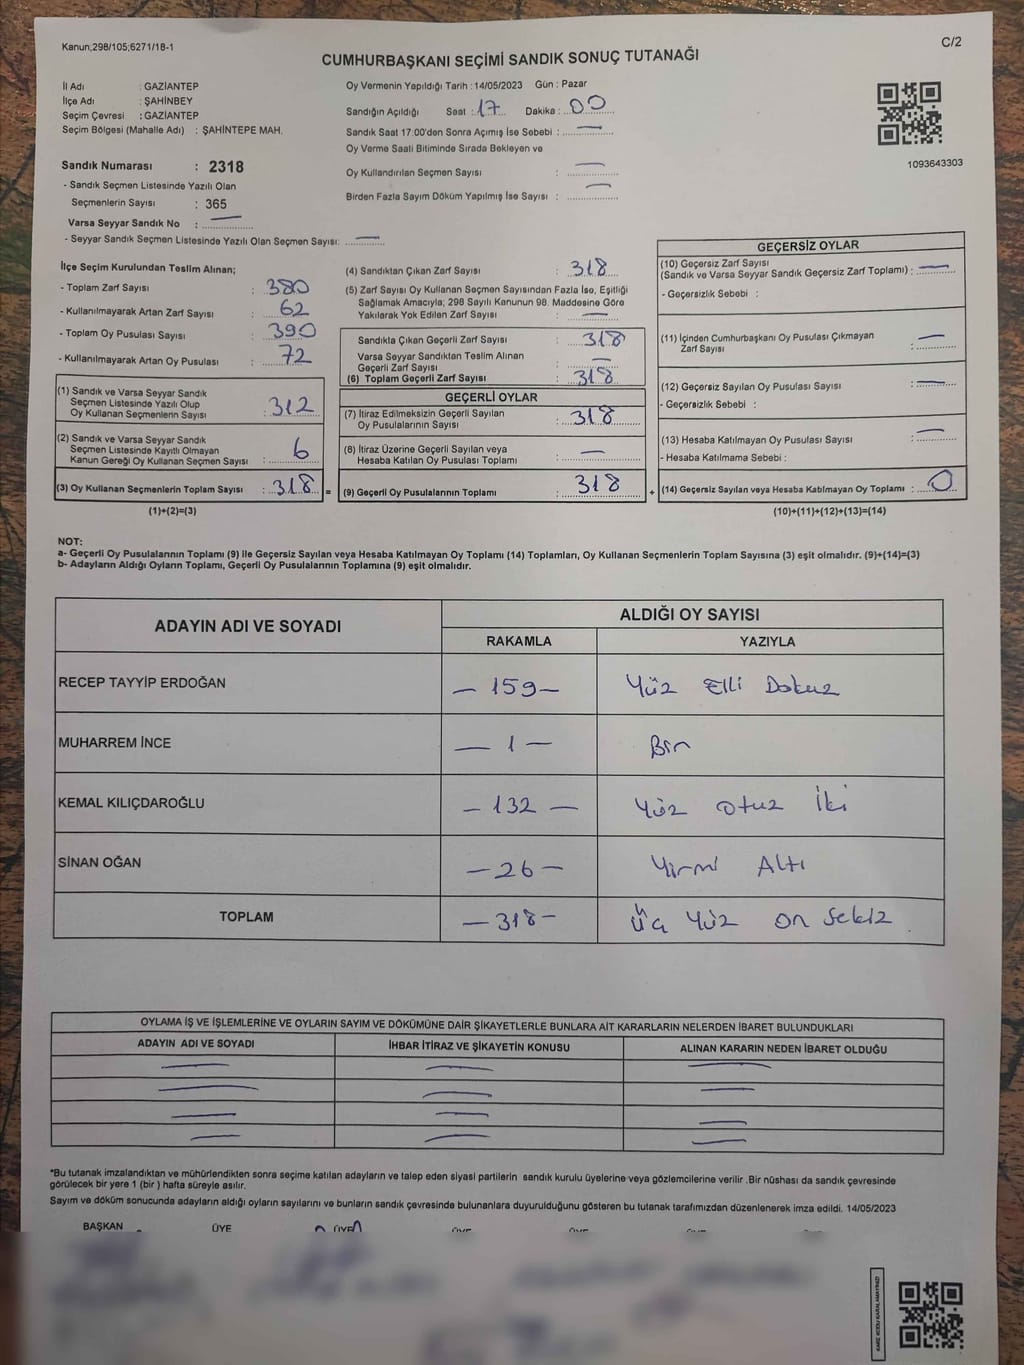 Kanun;298/105;6271/18-1
C/2
CUMHURBAŞKANI SEÇİMİ SANDIK SONUÇ TUTANAĞI
İl Adı : GAZİANTEP
İlçe Adı : ŞAHİNBEY
Seçim Çevresi : GAZİANTEP
Seçim Bölgesi (Mahalle Adı) : ŞAHİNTEPE MAH.
Sandık Numarası : 2318
- Sandık Seçmen Listesinde Yazılı Olan
Seçmenlerin Sayısı : 365
Varsa Seyyar Sandık No : —
- Seyyar Sandık Seçmen Listesinde Yazılı Olan Seçmen Sayısı: —
Oy Vermenin Yapıldığı Tarih : 14/05/2023 Gün : Pazar
Sandığın Açıldığı Saat : 17 Dakika : 00
Sandık Saat 17:00'den Sonra Açımış İse Sebebi : —
Oy Verme Saati Bitiminde Sırada Bekleyen ve
Oy Kullandırılan Seçmen Sayısı : —
Birden Fazla Sayım Döküm Yapılmış İse Sayısı : —
1093643303
İlçe Seçim Kurulundan Teslim Alınan;
- Toplam Zarf Sayısı : 380
- Kullanılmayarak Artan Zarf Sayısı : 62
- Toplam Oy Pusulası Sayısı : 390
- Kullanılmayarak Artan Oy Pusulası : 72
(1) Sandık ve Varsa Seyyar Sandık
Seçmen Listesinde Yazılı Olup
Oy Kullanan Seçmenlerin Sayısı : 312
(2) Sandık ve Varsa Seyyar Sandık
Seçmen Listesinde Kayıtlı Olmayan
Kanun Gereği Oy Kullanan Seçmen Sayısı : 6
(3) Oy Kullanan Seçmenlerin Toplam Sayısı : 318 =
(1)+(2)=(3)
(4) Sandıktan Çıkan Zarf Sayısı : 318
(5) Zarf Sayısı Oy Kullanan Seçmen Sayısından Fazla İse, Eşitliği
Sağlamak Amacıyla; 298 Sayılı Kanunun 98. Maddesine Göre
Yakılarak Yok Edilen Zarf Sayısı : —
Sandıkta Çıkan Geçerli Zarf Sayısı : 318
Varsa Seyyar Sandıktan Teslim Alınan
Geçerli Zarf Sayısı : —
(6) Toplam Geçerli Zarf Sayısı : 318
GEÇERLİ OYLAR
(7) İtiraz Edilmeksizin Geçerli Sayılan
Oy Pusulalarının Sayısı : 318
(8) İtiraz Üzerine Geçerli Sayılan veya
Hesaba Katılan Oy Pusulası Toplamı : —
(9) Geçerli Oy Pusulalarının Toplamı : 318 +
GEÇERSİZ OYLAR
(10) Geçersiz Zarf Sayısı
(Sandık ve Varsa Seyyar Sandık Geçersiz Zarf Toplamı) : —
- Geçersizlik Sebebi :
(11) İçinden Cumhurbaşkanı Oy Pusulası Çıkmayan
Zarf Sayısı : —
(12) Geçersiz Sayılan Oy Pusulası Sayısı : —
- Geçersizlik Sebebi :
(13) Hesaba Katılmayan Oy Pusulası Sayısı : —
- Hesaba Katılmama Sebebi :
(14) Geçersiz Sayılan veya Hesaba Katılmayan Oy Toplamı : 0
(10)+(11)+(12)+(13)=(14)
NOT:
a- Geçerli Oy Pusulalarının Toplamı (9) ile Geçersiz Sayılan veya Hesaba Katılmayan Oy Toplamı (14) Toplamları, Oy Kullanan Seçmenlerin Toplam Sayısına (3) eşit olmalıdır. (9)+(14)=(3)
b- Adayların Aldığı Oyların Toplamı, Geçerli Oy Pusulalarının Toplamına (9) eşit olmalıdır.
ADAYIN ADI VE SOYADI
ALDIĞI OY SAYISI
RAKAMLA YAZIYLA
RECEP TAYYİP ERDOĞAN — 159 — Yüz Elli Dokuz
MUHARREM İNCE — 1 — Bir
KEMAL KILIÇDAROĞLU — 132 — Yüz otuz İki
SİNAN OĞAN — 26 — Yirmi Altı
TOPLAM — 318 — Üç Yüz on Sekiz
OYLAMA İŞ VE İŞLEMLERİNE VE OYLARIN SAYIM VE DÖKÜMÜNE DAİR ŞİKAYETLERLE BUNLARA AİT KARARLARIN NELERDEN İBARET BULUNDUKLARI
ADAYIN ADI VE SOYADI İHBAR İTİRAZ VE ŞİKAYETİN KONUSU ALINAN KARARIN NEDEN İBARET OLDUĞU
*Bu tutanak imzalandıktan ve mühürlendikten sonra seçime katılan adayların ve talep eden siyasi partilerin sandık kurulu üyelerine veya gözlemcilerine verilir .Bir nüshası da sandık çevresinde
görülecek bir yere 1 (bir ) hafta süreyle asılır.
Sayım ve döküm sonucunda adayların aldığı oyların sayılarını ve bunların sandık çevresinde bulunanlara duyurulduğunu gösteren bu tutanak tarafımızdan düzenlenerek imza edildi. 14/05/2023
BAŞKAN ÜYE ÜYE